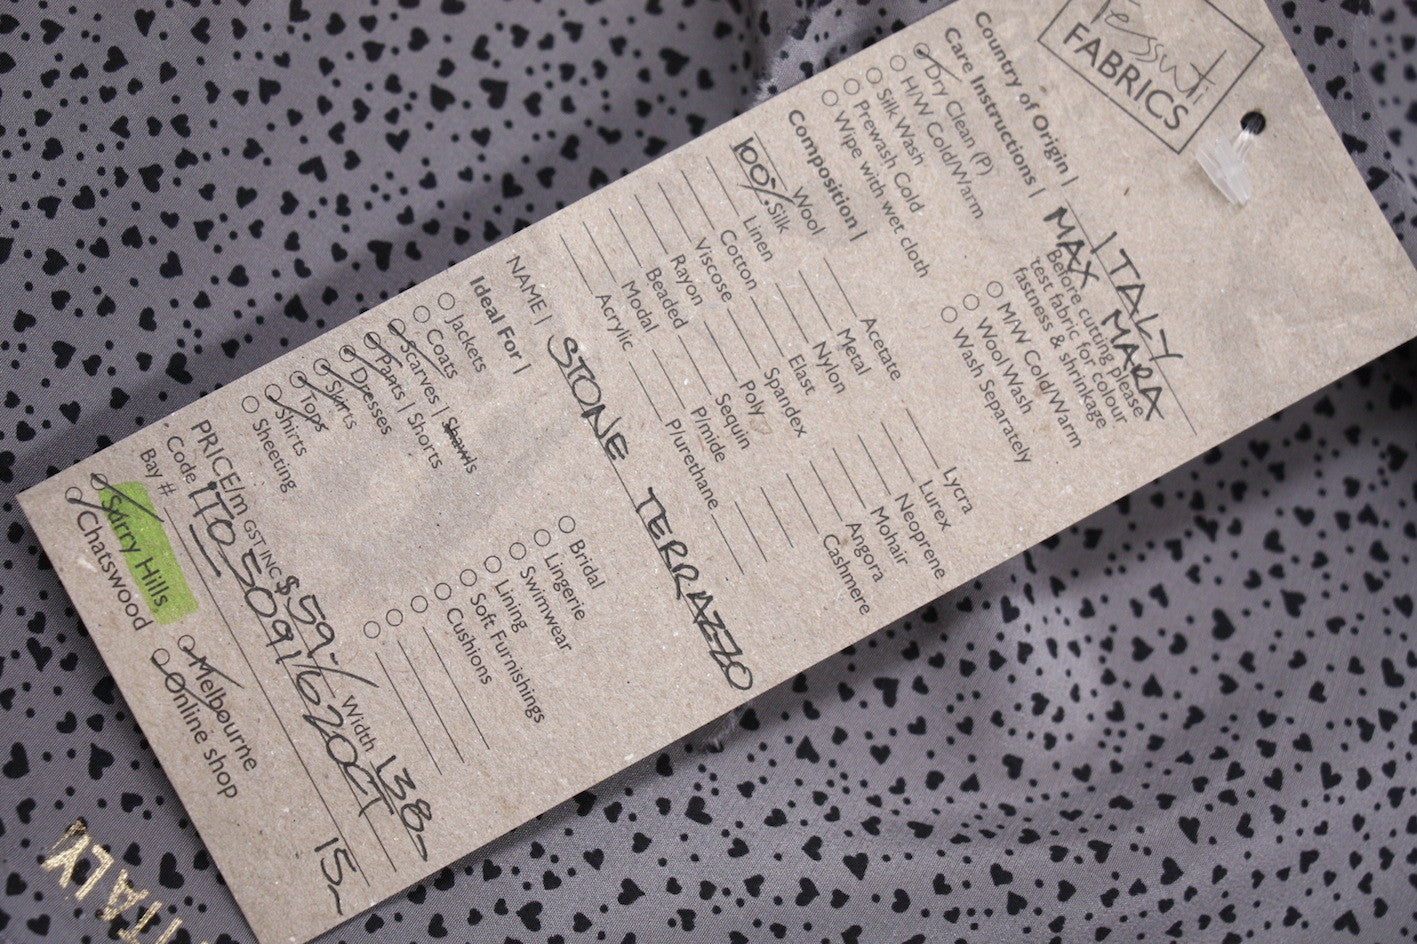 Tessuti
FABRICS
Country of Origin | ITALY
Care Instructions | MAX MARA
Dry Clean (P)
H/W Cold/Warm
Silk Wash
Prewash Cold
Wipe with wet cloth
Before cutting please
test fabric for colour
fastness & shrinkage
M/W Cold/Warm
Wool Wash
Wash Separately
Composition |
Wool
100% Silk
Linen
Cotton
Viscose
Rayon
Beaded
Modal
Acrylic
Acetate
Metal
Nylon
Elast
Spandex
Poly
Sequin
P/mide
P/urethane
Lycra
Lurex
Neoprene
Mohair
Angora
Cashmere
NAME | STONE TERRAZZO
Ideal For |
Jackets
Coats
Scarves | Shawls
Pants | Shorts
Dresses
Skirts
Tops
Shirts
Sheeting
Bridal
Lingerie
Swimwear
Lining
Soft Furnishings
Cushions
PRICE/m GST INC $59.- Width 138
Code ITO50916200CT
Bay # 15
Surry Hills
Chatswood
Melbourne
Online shop
ITALY